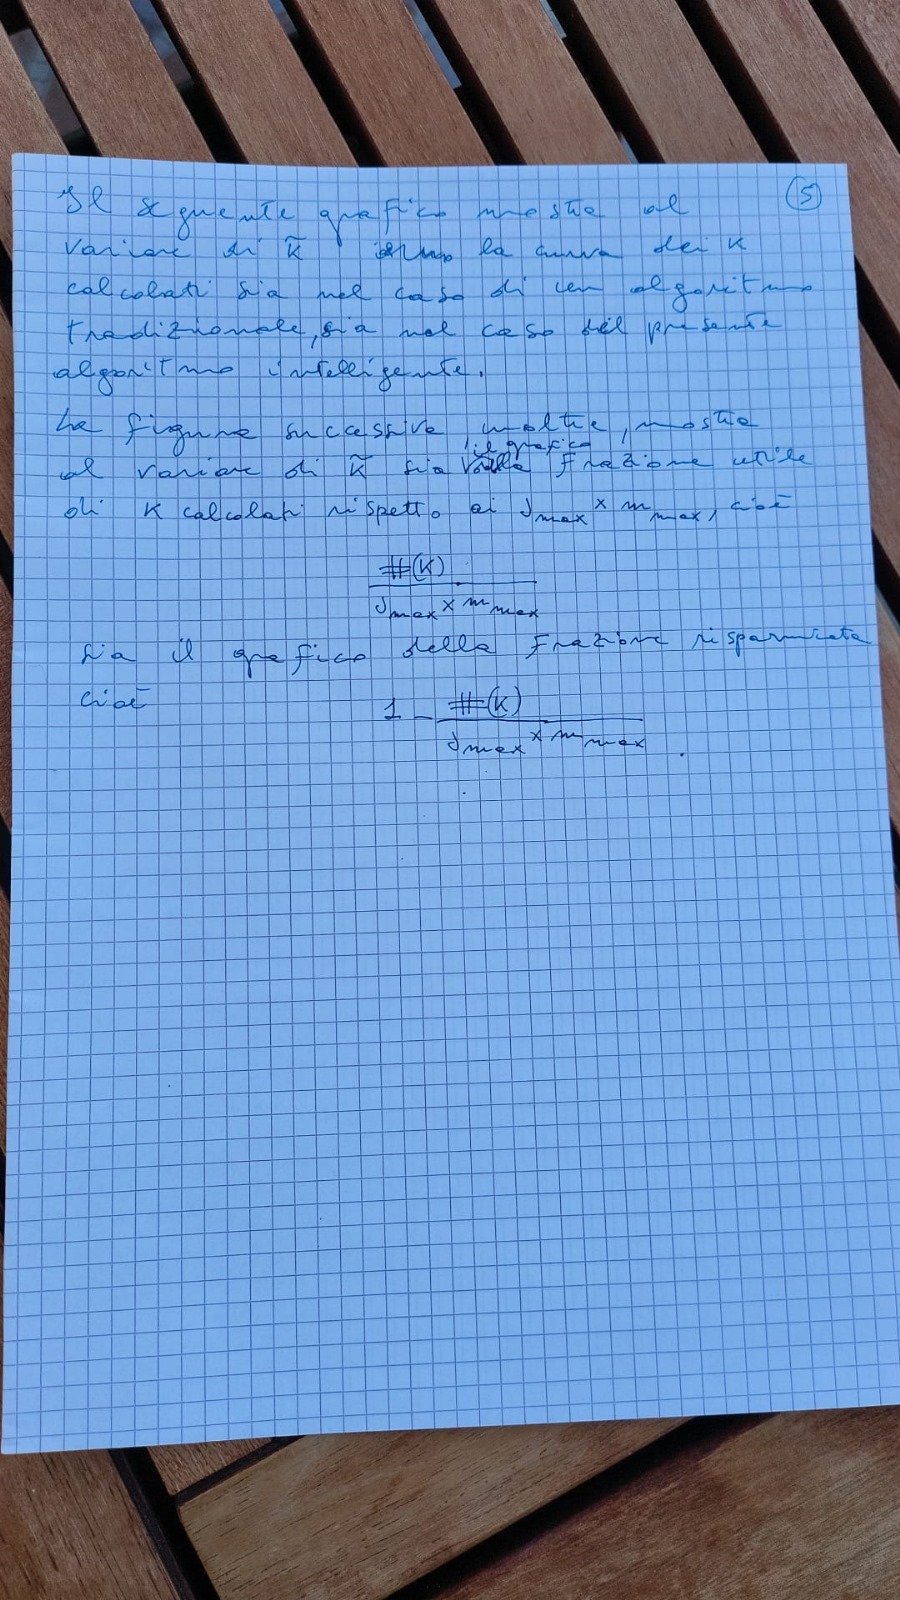 Il seguente grafico mostra al
⑤
variare di k̃ la curva dei K
calcolati sia nel caso di un algoritmo
tradizionale, sia nel caso del presente
algoritmo intelligente.
La figura successiva inoltre, mostra
il grafico
al variare di k̃ sia della frazione utile
di K calcolati rispetto ai Jmax × mmax, cioè
#(K)
Jmax × mmax
sia il grafico della frazione risparmiata
cioè
1 - #(K)
Jmax × mmax .